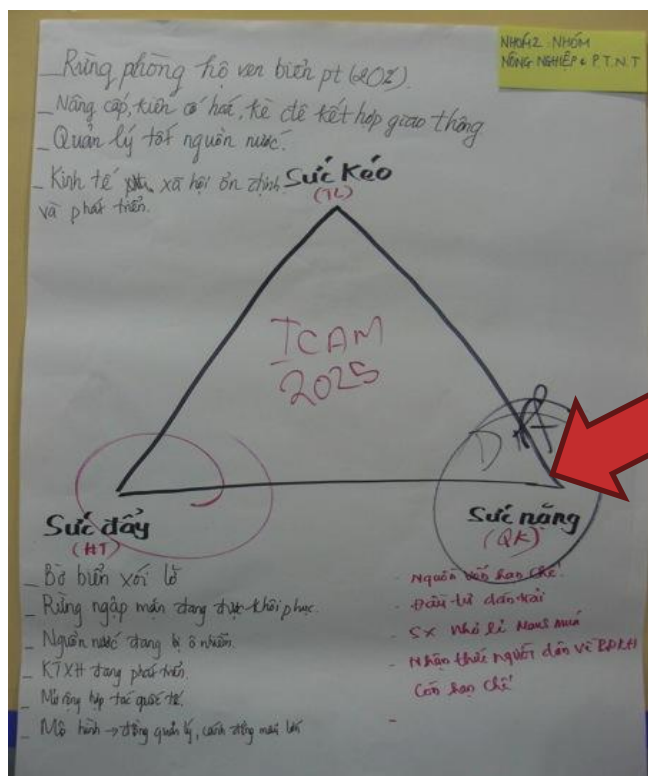 NHÓM2 NHÓM
NÔNG NGHIỆP & P.T.N.T
_ Rừng phòng hộ ven biển pt (202).
_ Nâng cấp, kiên cố hoá, kè đê kết hợp giao thông
_ Quản lý tốt nguồn nước.
_ Kinh tế xã hội ổn định
và phát triển.
Sức Kéo
(TL)
ICAM
2025
Sức đẩy
(HT)
Sức nặng
(QK)
_ Bờ biển xói lở
_ Rừng ngập mặn đang được khôi phục.
_ Nguồn nước đang bị ô nhiễm.
_ KTXH đang phát triển.
_ Mở rộng hợp tác quốc tế.
_ Mô hình → đồng quản lý, cánh đồng mẫu lớn
- Nguồn vốn hạn chế.
- Đầu tư dàn trải
- SX nhỏ lẻ manh mún
- Nhận thức người dân về BĐKH
Còn hạn chế
-